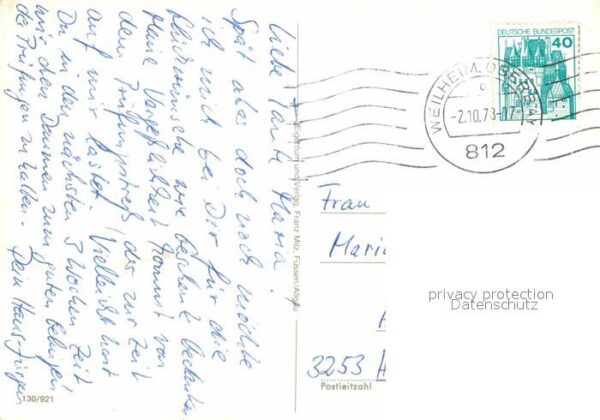 Liebe Tante Maria!
Spät aber doch noch möchte
ich mich bei Dir für die
wie
Meine Vergeßlichkeit kommt von
dem Prüfungsstreß der zur Zeit
auf mir lastet. Vielleicht hast
Du in den nächsten 3 Wochen Zeit
mir den Daumen zum guten Gelingen
der Prüfungen zu halten. Dein Hans-Jürgen
130/921
Eigentum und Verlag Franz Milz, Füssen/Allgäu
DEUTSCHE BUNDESPOST
40
WEILHEIM, OBERBAY
-2.10.78-17
812
Frau
Mari
privacy protection
Datenschutz
3253 H
Postleitzahl